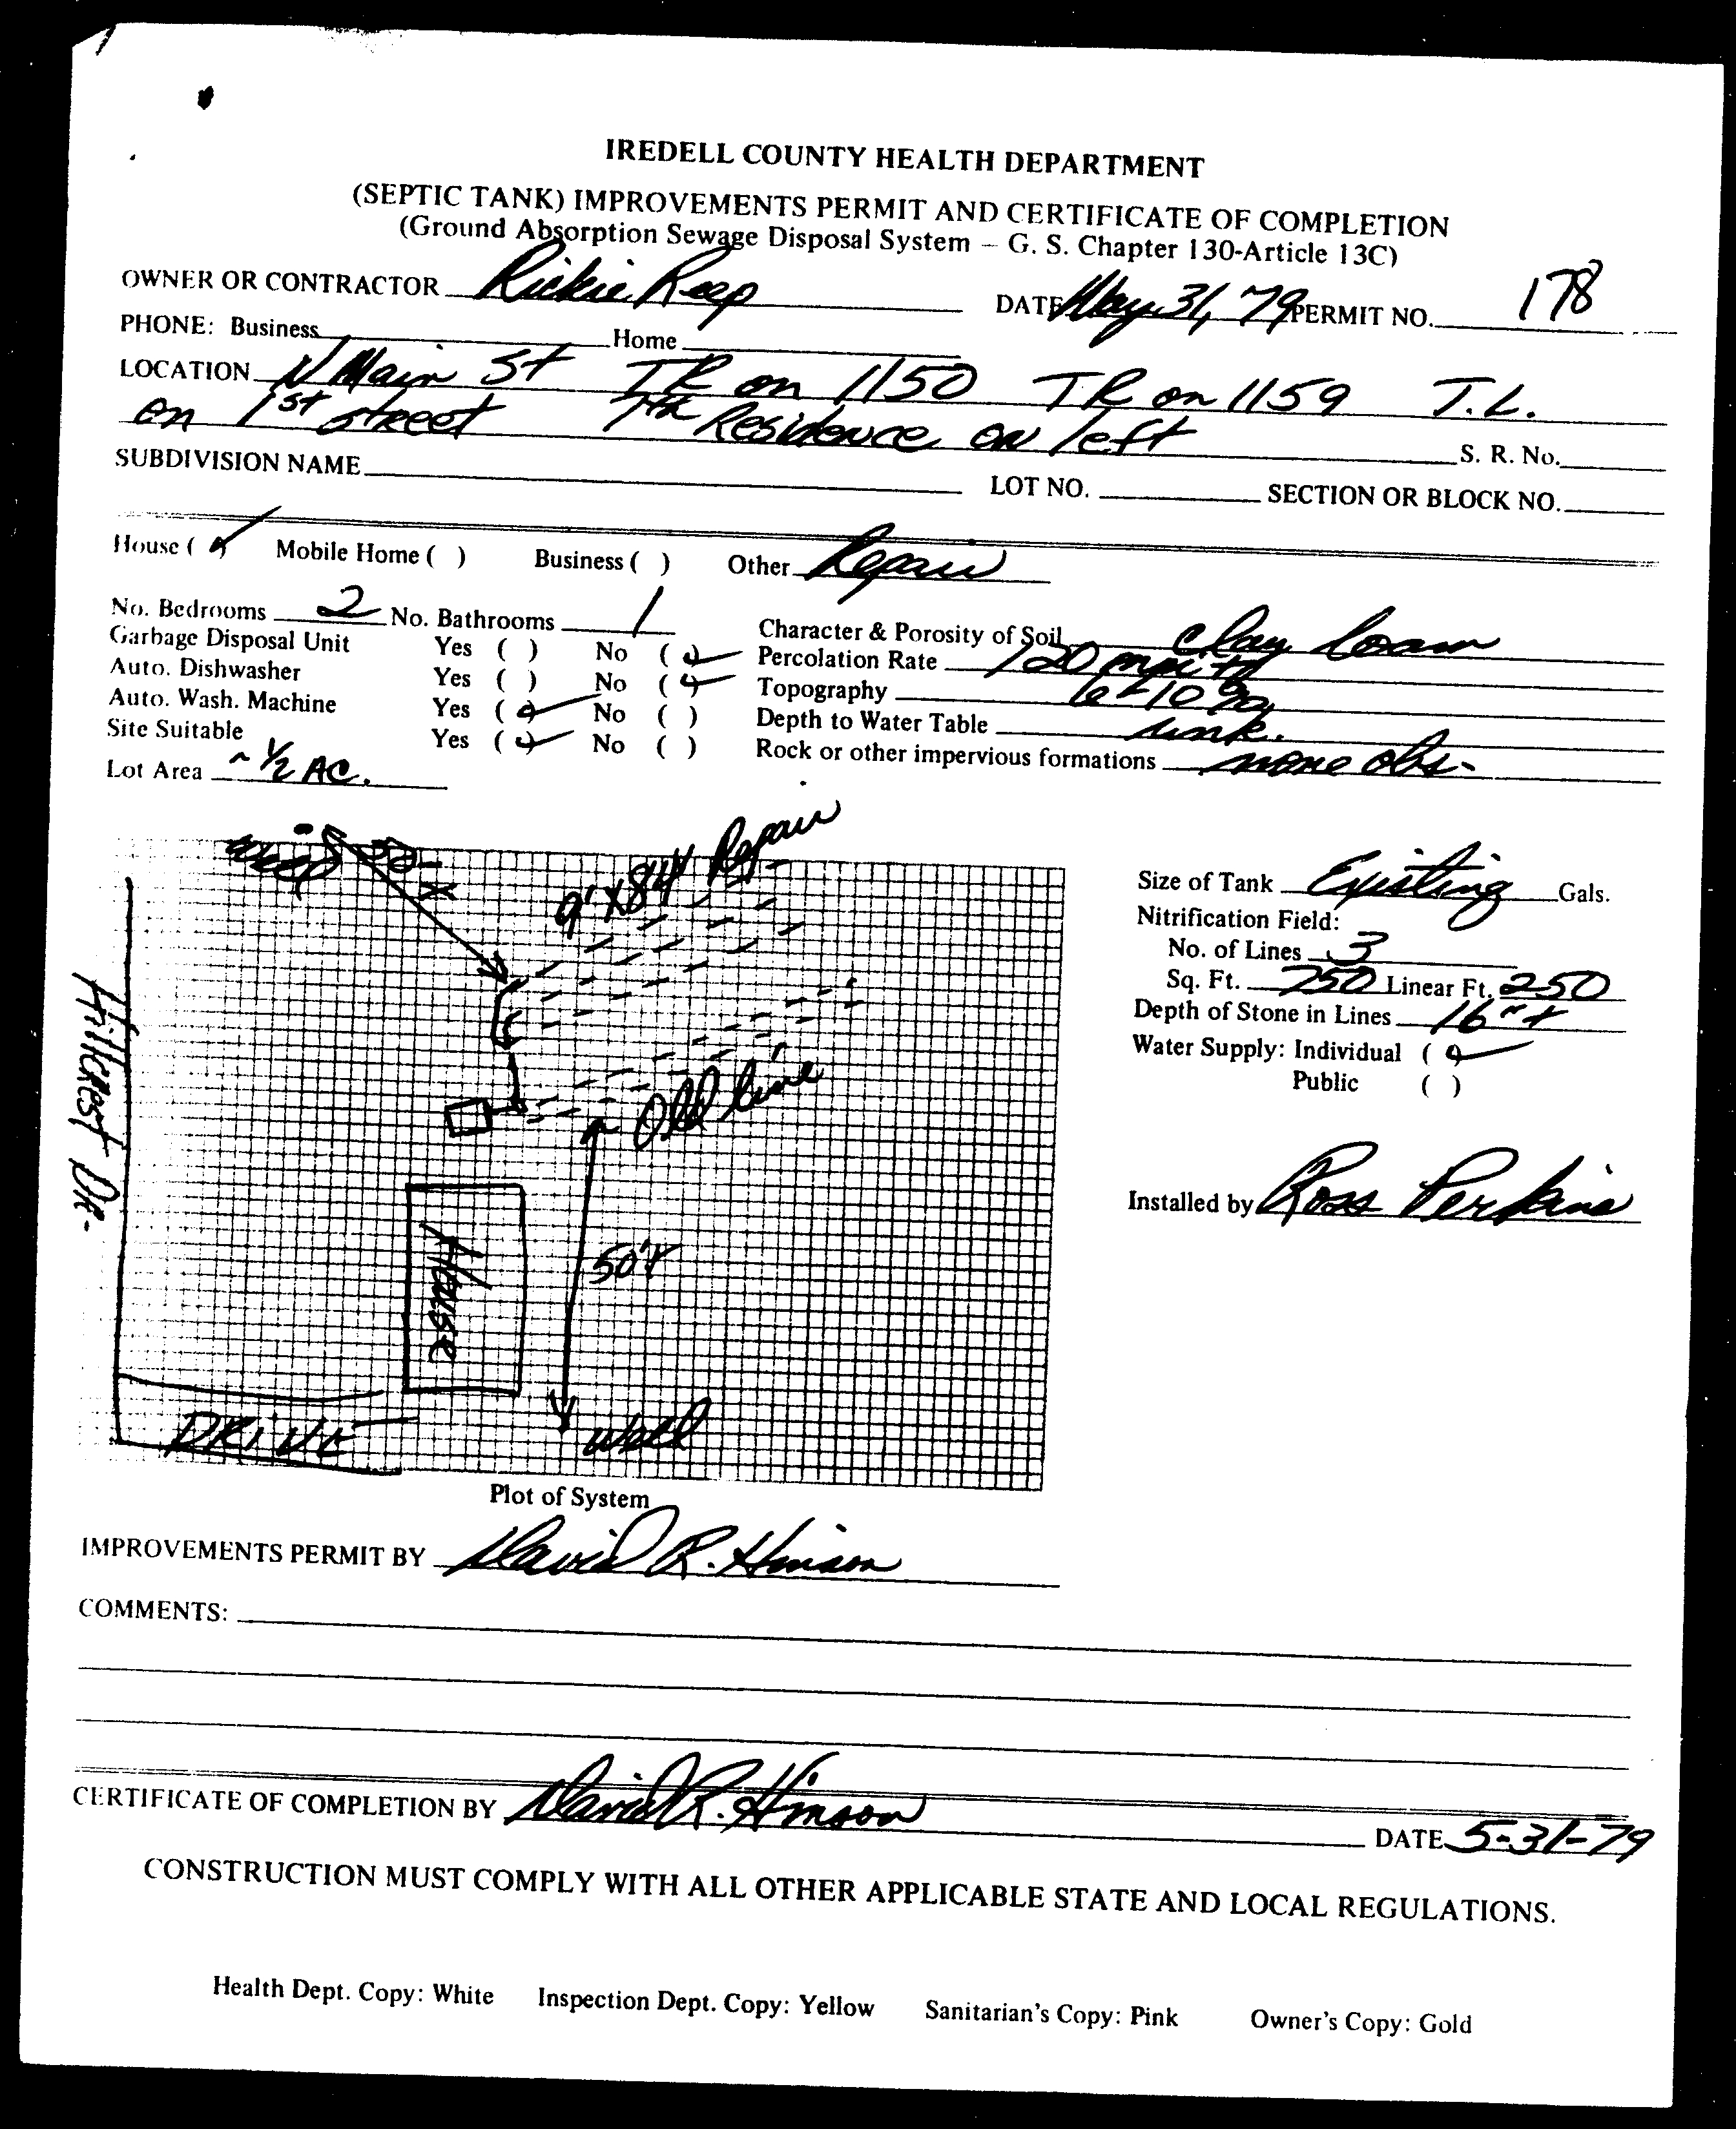 IREDELL COUNTY HEALTH DEPARTMENT
(SEPTIC TANK) IMPROVEMENTS PERMIT AND CERTIFICATE OF COMPLETION
(Ground Absorption Sewage Disposal System – G. S. Chapter 130-Article 13C)
OWNER OR CONTRACTOR Rickie Reep DATE May 31, 79 PERMIT NO. 178
PHONE: Business Home
LOCATION N Main St TR on 1150 TR on 1159 T.L.
on 1st street 7th Residence on left S. R. No.
SUBDIVISION NAME LOT NO. SECTION OR BLOCK NO.
House (✓) Mobile Home ( ) Business ( ) Other Repair
No. Bedrooms 2 No. Bathrooms 1 Character & Porosity of Soil clay loam
Garbage Disposal Unit Yes ( ) No (✓) Percolation Rate
Auto. Dishwasher Yes ( ) No (✓) Topography 6-10%
Auto. Wash. Machine Yes (✓) No ( ) Depth to Water Table unk.
Site Suitable Yes (✓) No ( ) Rock or other impervious formations none obs-
Lot Area ~ 1/2 AC.
9' X 84' Repair
50'+
Old line
Hillcrest DR-
House
50'+
DRIVE
well
Plot of System
Size of Tank Existing Gals.
Nitrification Field:
No. of Lines 3
Sq. Ft. 750 Linear Ft. 250
Depth of Stone in Lines 16"+
Water Supply: Individual (✓)
Public ( )
Installed by Ross Perkins
IMPROVEMENTS PERMIT BY David R. Hinson
COMMENTS:
CERTIFICATE OF COMPLETION BY David R. Hinson DATE 5-31-79
CONSTRUCTION MUST COMPLY WITH ALL OTHER APPLICABLE STATE AND LOCAL REGULATIONS.
Health Dept. Copy: White Inspection Dept. Copy: Yellow Sanitarian's Copy: Pink Owner's Copy: Gold